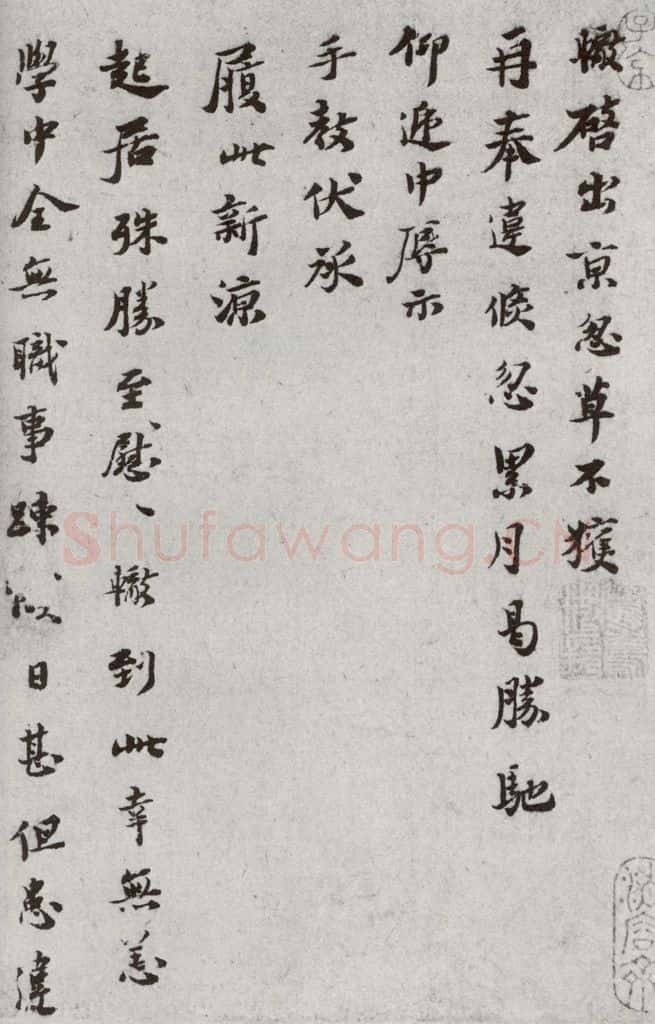 轍啓出京忽草不獲
再奉違倐忽累月曷勝馳
仰遞中辱示
手教伏承
履此新涼
起居殊勝至慰、轍到此幸無恙
學中全無職事踈
日甚但患違
Shufawang.CN